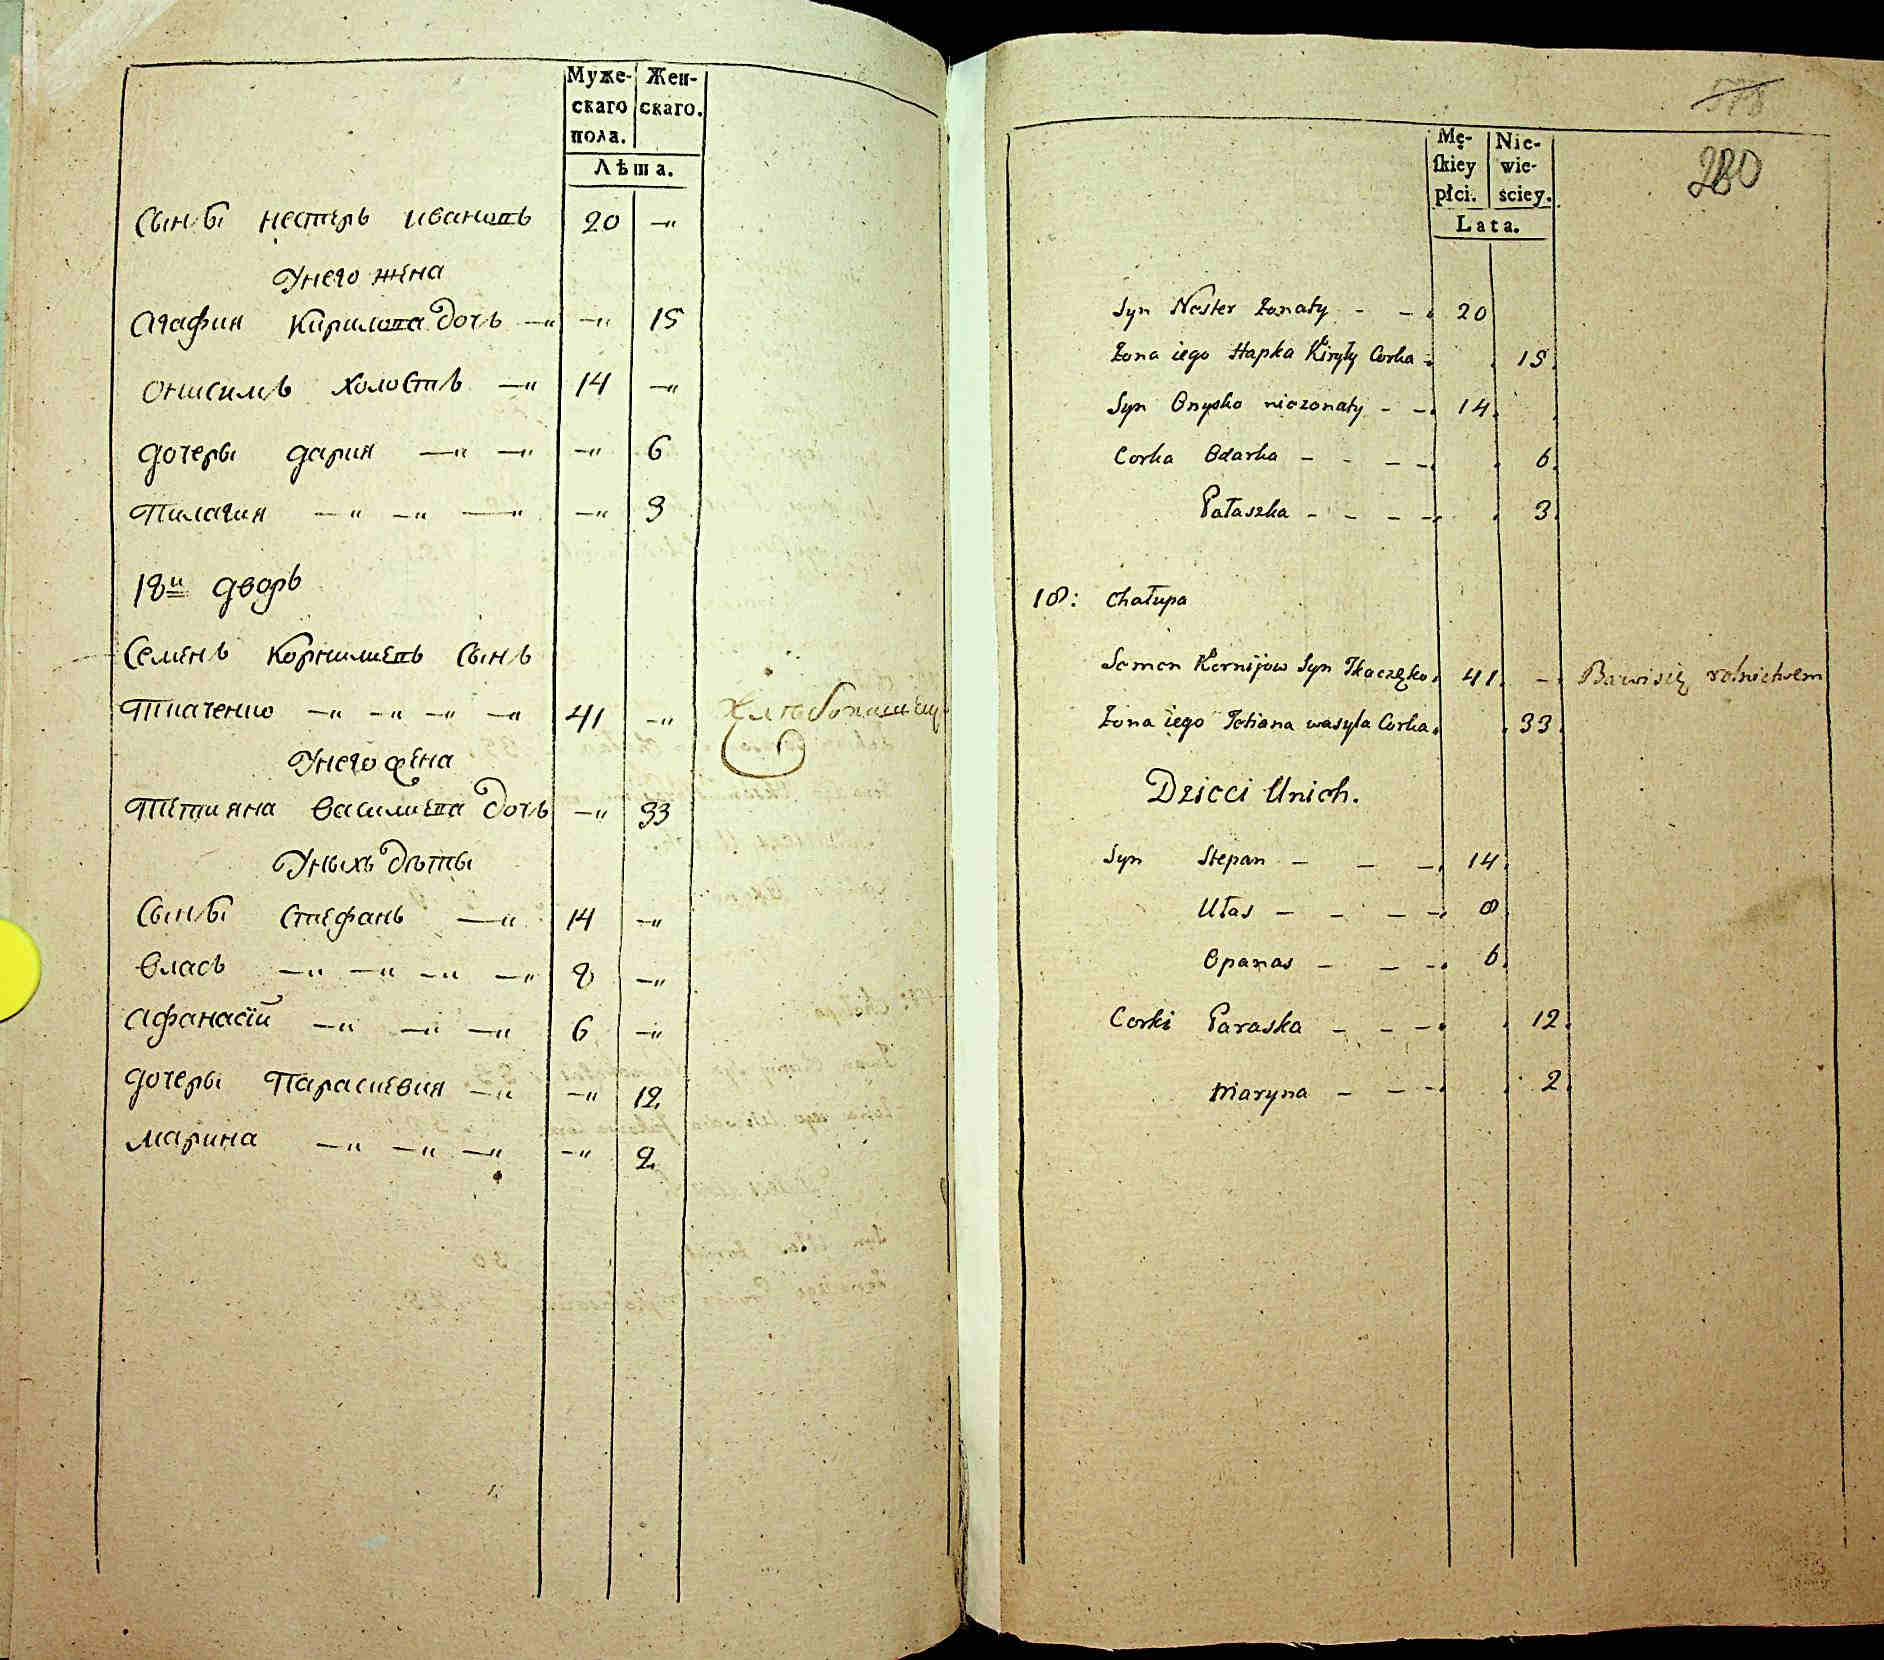 Муже- Жен-
скаго скаго.
пола.
Лѣта.
Сынъı нестеръ ивановъ 20 —"
У него жена
Агафия Кирилова Дочь —" —" 15
Онисимъ холостъ —" 14 —"
дочеры дария —" —" —" 6
Пилагия —" —" —" —" 3
18й дворъ
Семенъ Корнилиевъ Сынъ
Ткаченко —" —" —" —" 41 —"
У него жена
Тетияна Василиева Дочь —" 33
У ныхъ Дѣты
Сынъı Стефанъ —" 14 —"
Власъ —" —" —" —" 8 —"
Афанасїй —" —" —" 6 —"
дочеры Параскевия —" —" 12
Марина —" —" —" —" 2
578
280
Mę- Nie-
ſkiey wie-
płci. ściey.
Lata.
Syn Nester Żonaty - - 20
Żona iego Hapka Kiryły Corka 15
Syn Onysko nieżonaty - - 14
Corka Odarka - - - - 6
Pałaszka - - - - 3
18: Chałupa
Semen Kornijow Syn Tkaczęko 41 - Bawi się rolnictwem
Żona iego Tetiana wasyla Corka 33
Dzieci Unich.
Syn Stepan - - - 14
Ułas - - - - 8
Opanas - - - 6
Corki Paraska - - - 12
Maryna - - - 2